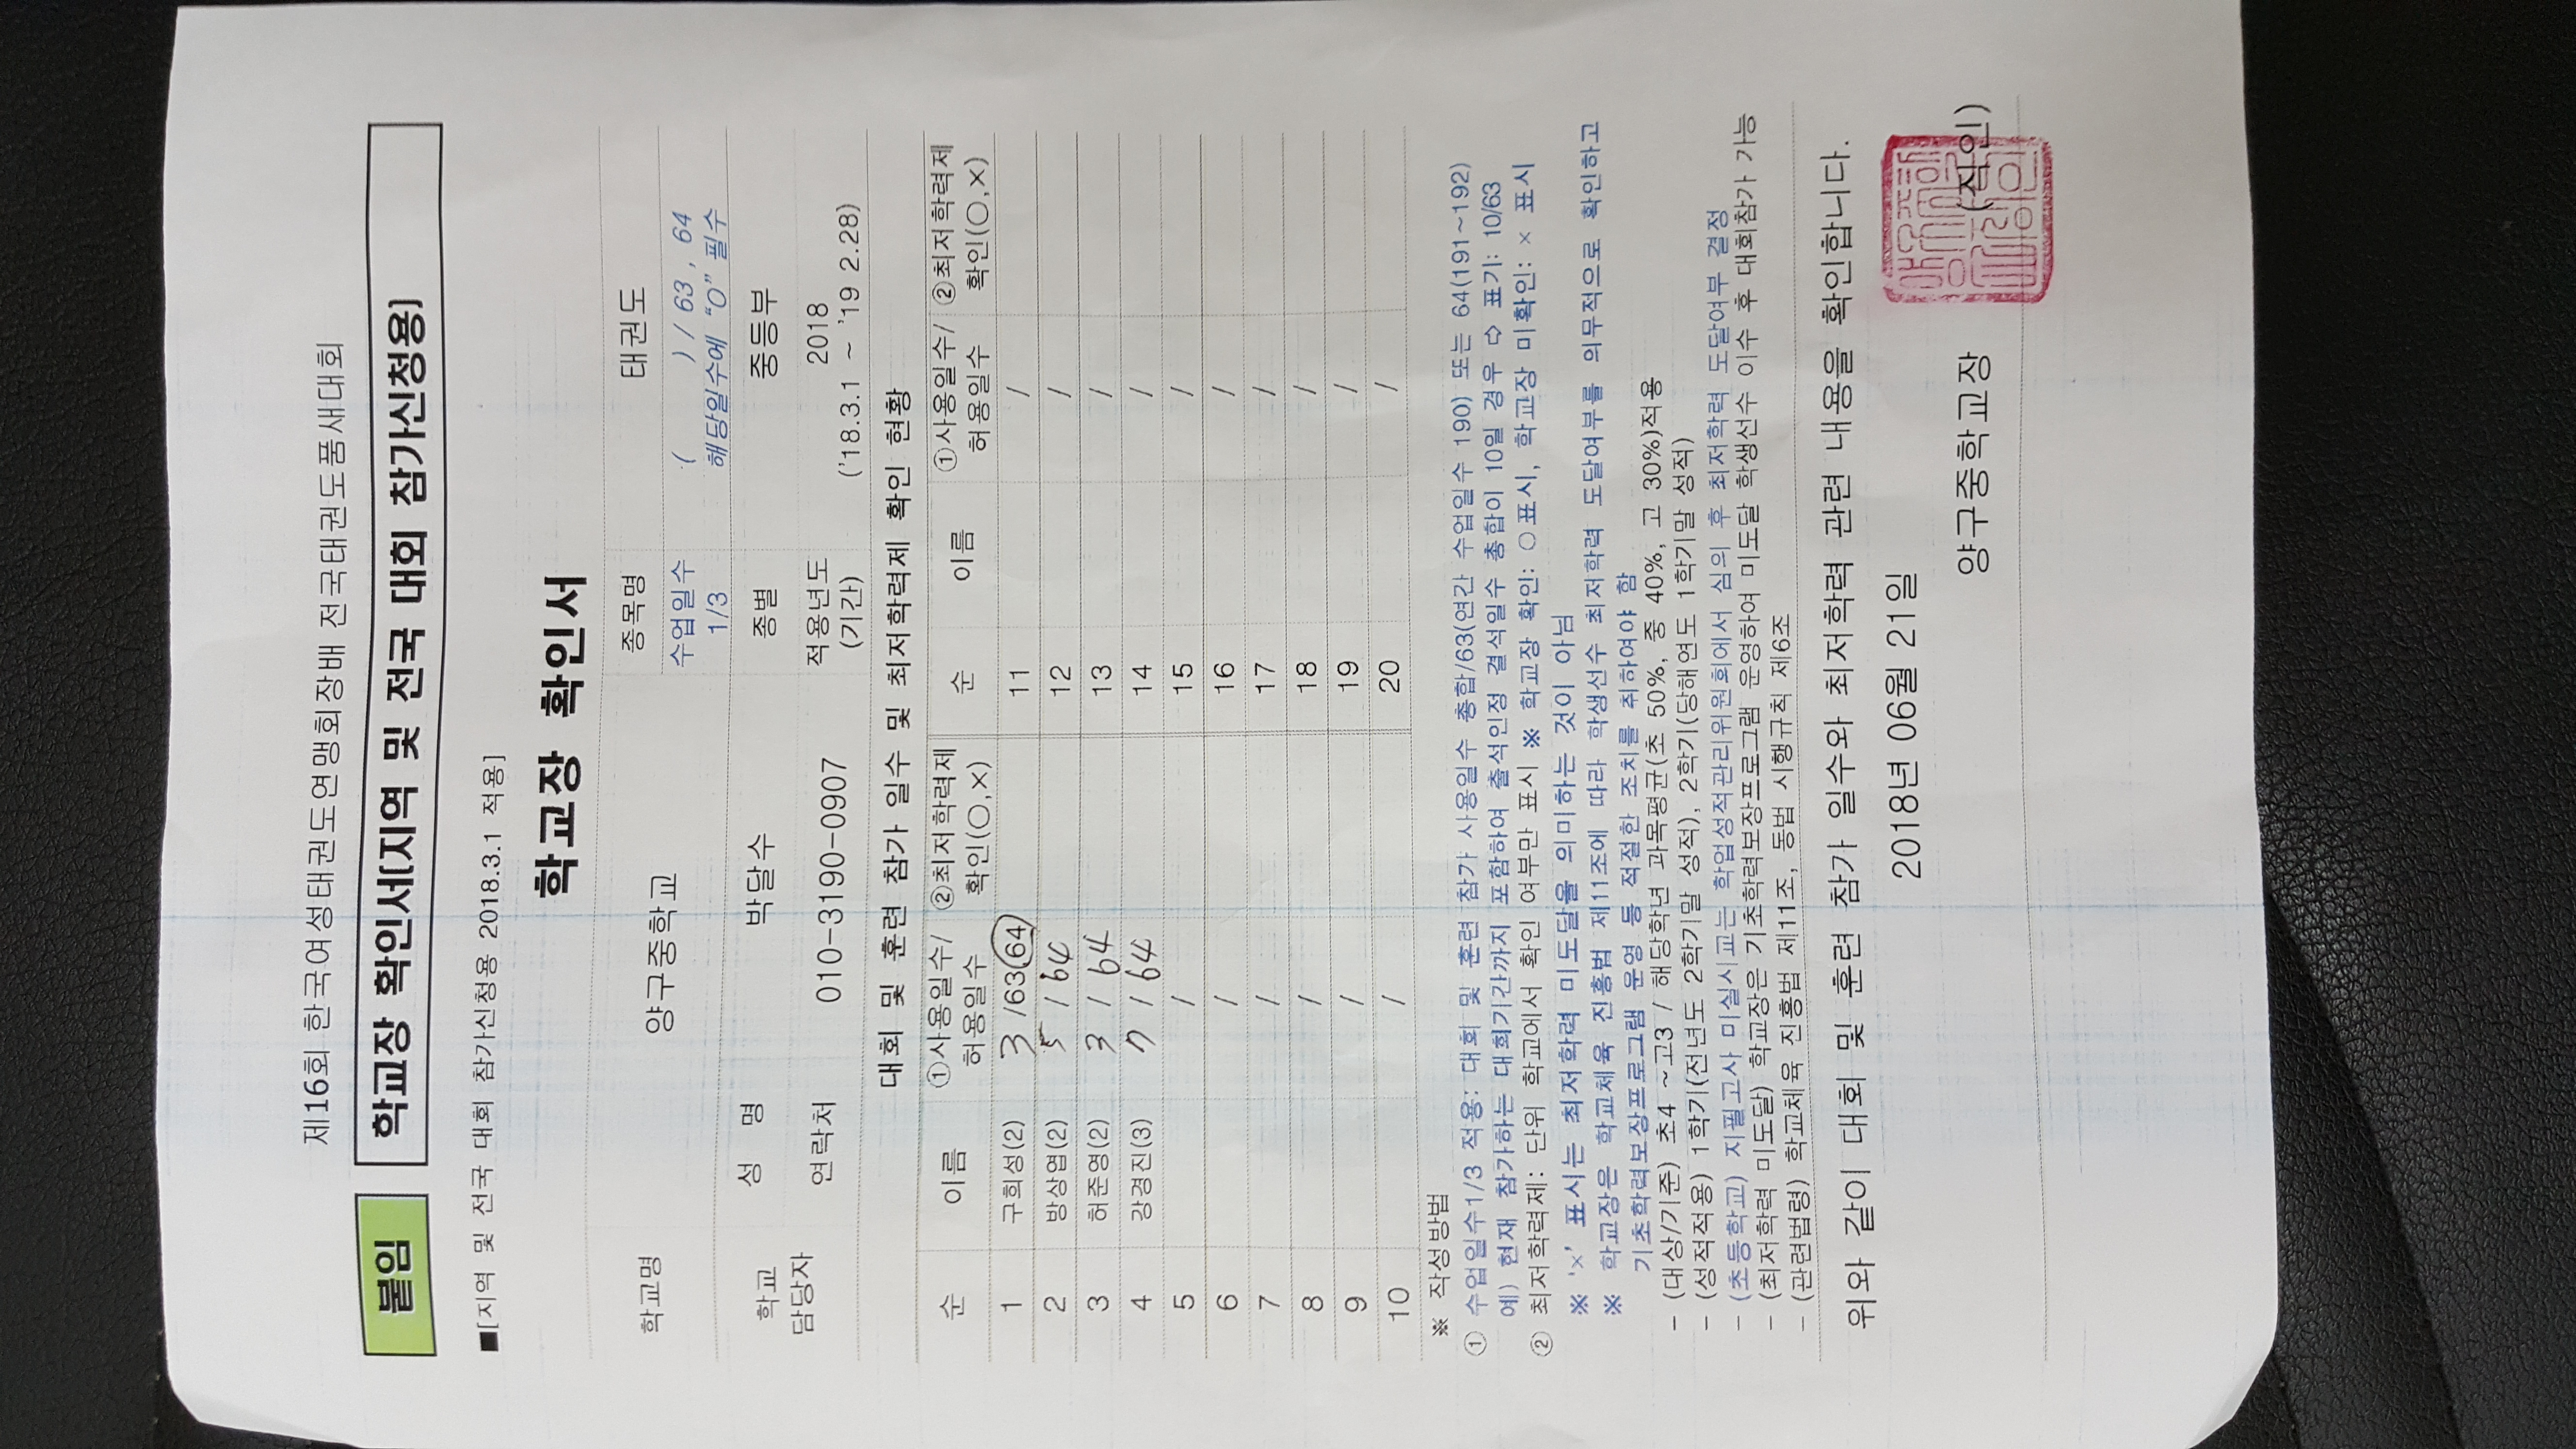 제16회 한국여성태권도연맹회장배 전국태권도품새대회
붙임 학교장 확인서(지역 및 전국 대회 참가신청용)
■[지역 및 전국 대회 참가신청용 2018.3.1 적용]
학교장 확인서
학교명 양구중학교 종목명 태권도
수업일수 1/3 ( ) / 63, 64
해당일수에 “O” 필수
학교 담당자 성 명 박달수 종별 중등부
연락처 010-3190-0907 적용년도 (기간) 2018
('18.3.1 ~ '19 2.28)
대회 및 훈련 참가 일수 및 최저학력제 확인 현황
순 이름 ①사용일수/ 허용일수 ②최저학력제 확인(○,×) 순 이름 ①사용일수/ 허용일수 ②최저학력제 확인(○,×)
1 구희성(2) 3 /63(64) 11 /
2 방상엽(2) 5 / 64 12 /
3 허준영(2) 3 / 64 13 /
4 강경진(3) 7 / 64 14 /
5 / 15 /
6 / 16 /
7 / 17 /
8 / 18 /
9 / 19 /
10 / 20 /
※ 작성방법
① 수업일수1/3 적용: 대회 및 훈련 참가 사용일수 총합/63(연간 수업일수 190) 또는 64(191~192)
예) 현재 참가하는 대회기간까지 포함하여 출석인정 결석일수 총합이 10일 경우 ⇨ 표기: 10/63
② 최저학력제: 단위 학교에서 확인 여부만 표시 ※ 학교장 확인: ○ 표시, 학교장 미확인: × 표시
※ '×' 표시는 최저학력 미도달을 의미하는 것이 아님
※ 학교장은 학교체육 진흥법 제11조에 따라 학생선수 최저학력 도달여부를 의무적으로 확인하고
기초학력보장프로그램 운영 등 적절한 조치를 취하여야 함
- (대상/기준) 초4 ~고3 / 해당학년 과목평균(초 50%, 중 40%, 고 30%)적용
- (성적적용) 1학기(전년도 2학기말 성적), 2학기(당해연도 1학기말 성적)
- (초등학교) 지필고사 미실시교는 학업성적관리위원회에서 심의 후 최저학력 도달여부 결정
- (최저학력 미도달) 학교장은 기초학력보장프로그램 운영하여 미도달 학생선수 이수 후 대회참가 가능
- (관련법령) 학교체육 진흥법 제11조, 동법 시행규칙 제6조
위와 같이 대회 및 훈련 참가 일수와 최저학력 관련 내용을 확인합니다.
2018년 06월 21일
양구중학교장 (직인)